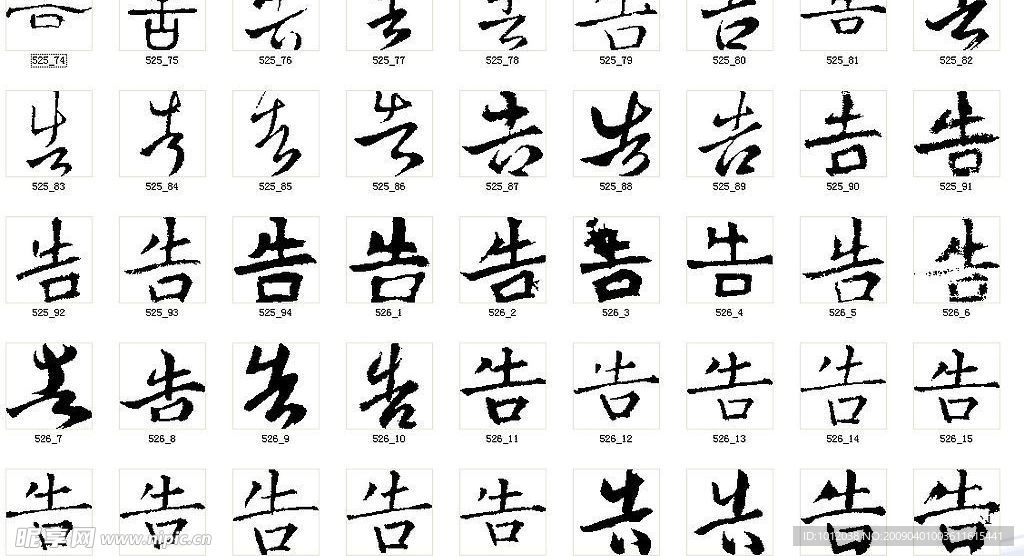 告 告 告 告 告 告 告 告 告
525_74 525_75 525_76 525_77 525_78 525_79 525_80 525_81 525_82
告 告 告 告 告 告 告 告 告
525_83 525_84 525_85 525_86 525_87 525_88 525_89 525_90 525_91
告 告 告 告 告 告 告 告 告
525_92 525_93 525_94 526_1 526_2 526_3 526_4 526_5 526_6
告 告 告 告 告 告 告 告 告
526_7 526_8 526_9 526_10 526_11 526_12 526_13 526_14 526_15
告 告 告 告 告 告 告 告 告
昵享网 www.nipic.cn
ID:1012038 NO:20090401003611615441